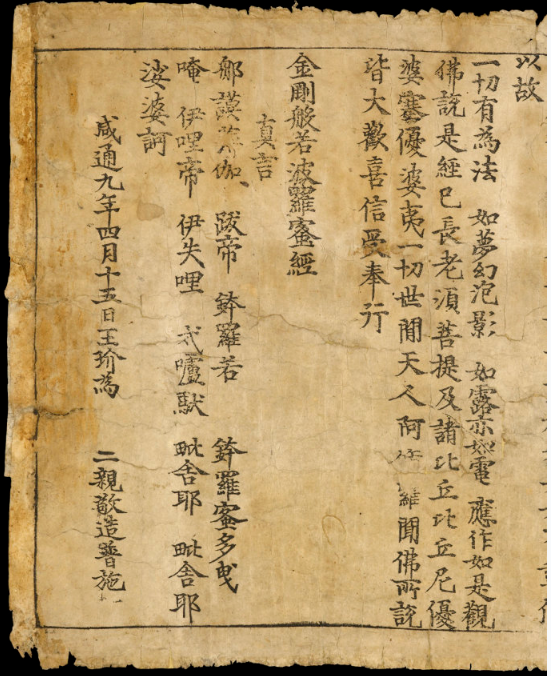 以故
一切有為法 如夢幻泡影 如露亦如電 應作如是觀
佛說是經已長老須菩提及諸比丘比丘尼優
婆塞優婆夷一切世間天人阿脩羅聞佛所說
皆大歡喜信受奉行
金剛般若波羅蜜經
真言
那謨 伽 跋帝 鉢羅若 鉢羅蜜多曳
唵 伊哩帝 伊失哩 戍嚧馱 毗舍耶 毗舍耶
娑婆訶
咸通九年四月十五日王玠為 二親敬造普施